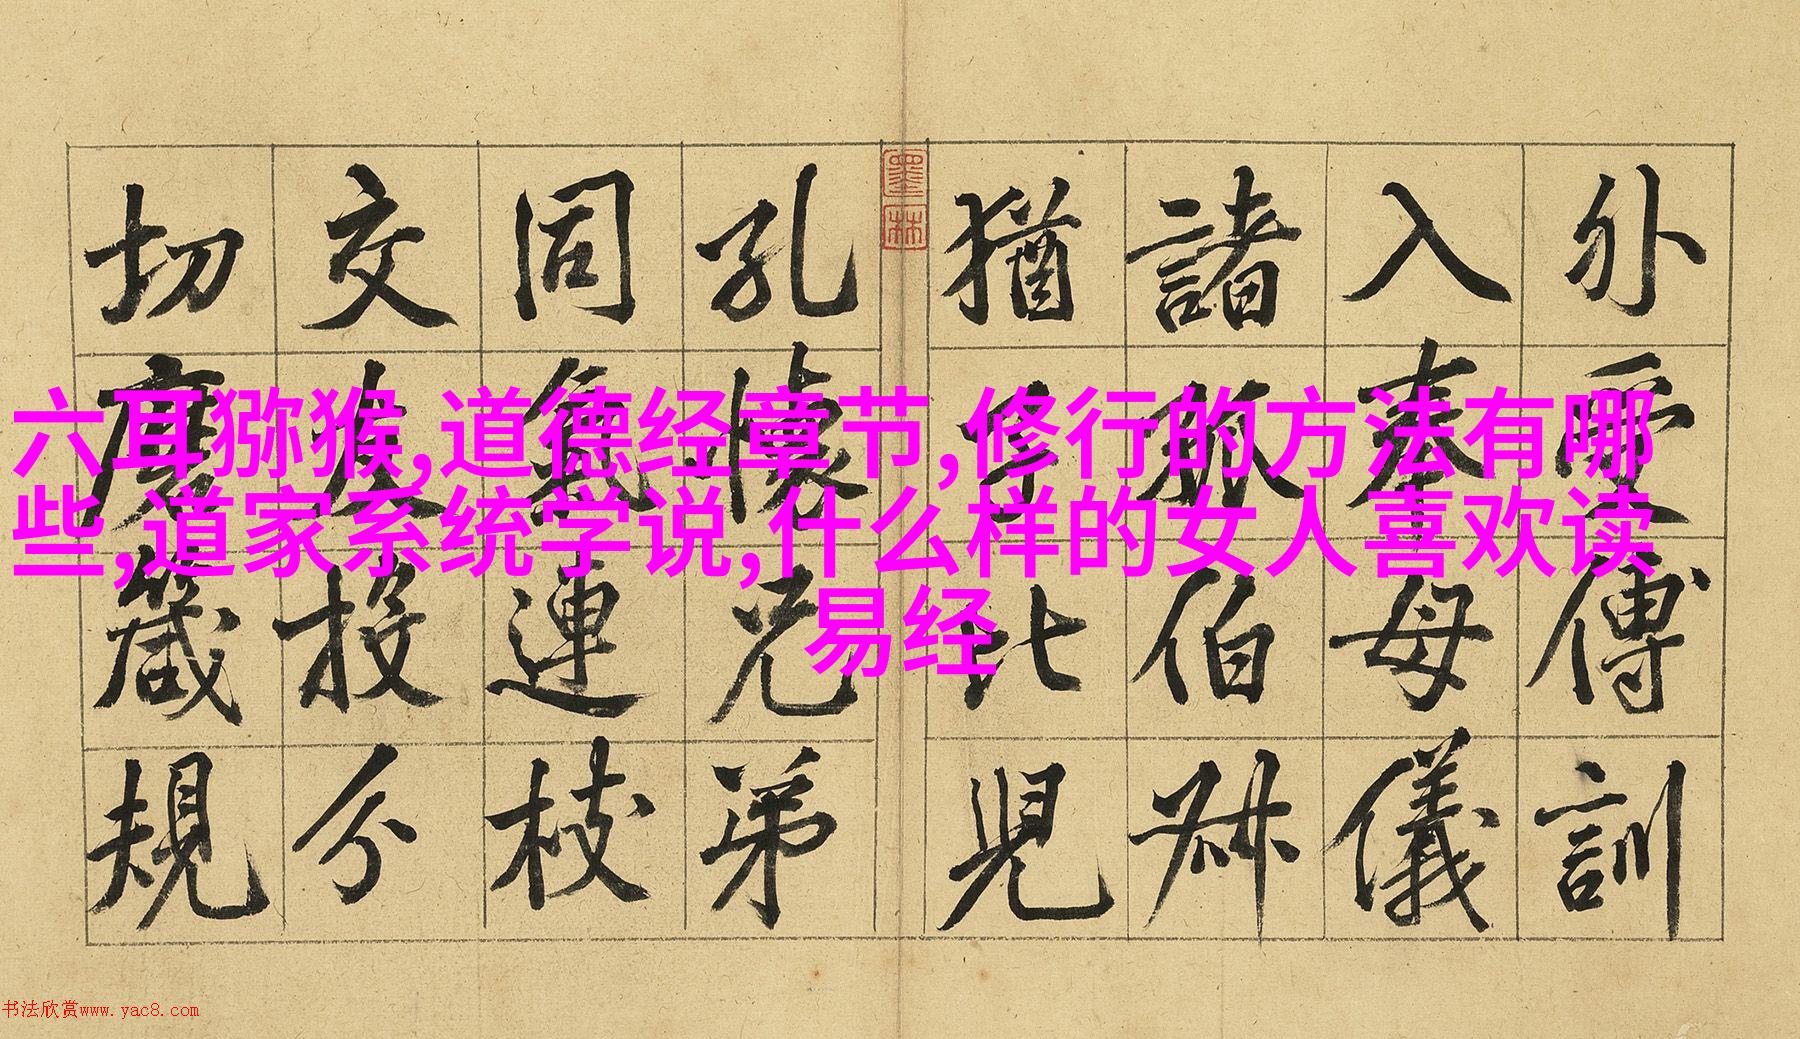 外受傅訓
入奉母儀
諸姑伯叔
猶子比兒
墨林
孔懷兄弟
同氣連枝
交友投分
切磨箴規
六耳猕猴,道德经章节,修行的方法有哪
些,道家系统学说,什么样的女人喜欢读
易经
书法欣赏www.yac8.com